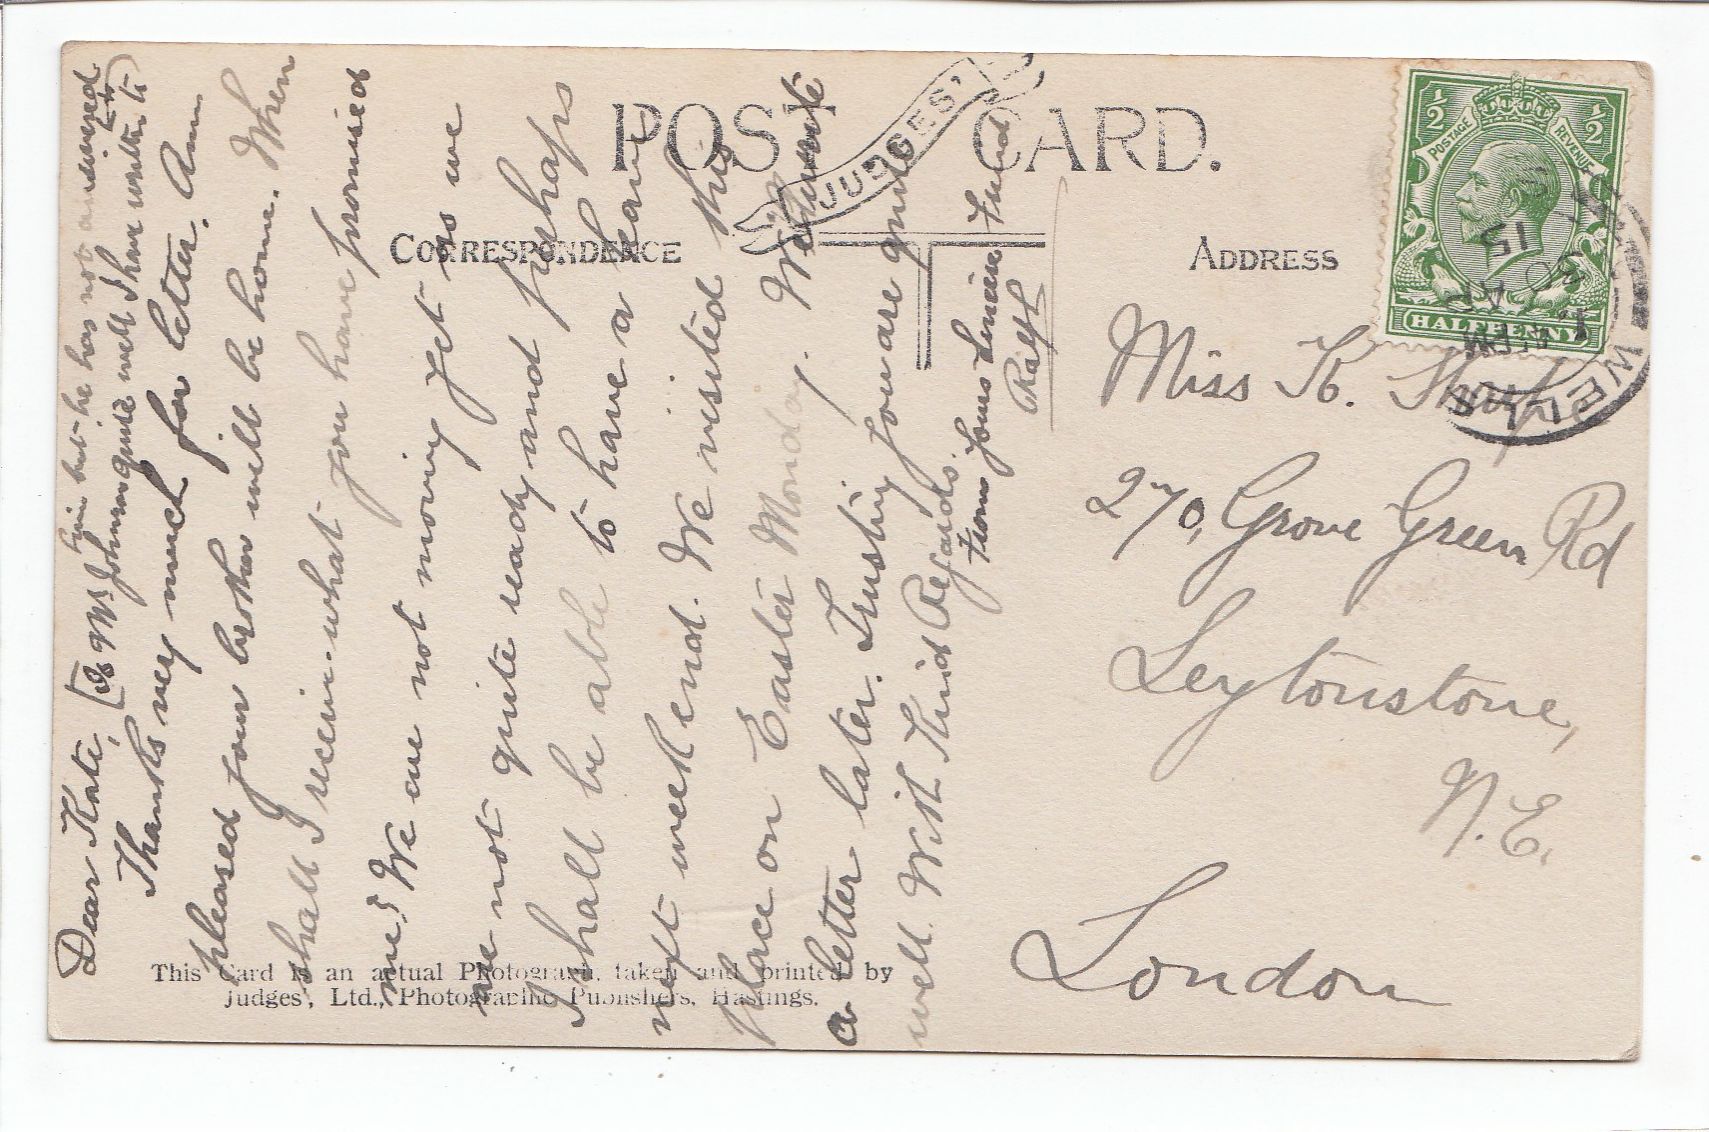 POST CARD.
JUDGES'
CORRESPONDENCE
ADDRESS
POSTAGE
REVENUE
½
½
HALFPENNY
WELLS
30 AP
15
Miss K.
270, Grove Green Rd
Leytonstone,
N.E.
London
Dear Kate,
Thanks very much for letter. Am
pleased your brother will be home. When
shall I receive what you have promised
me? We are not moving yet as we
are not quite ready and perhaps
I shall be able to have a leave
next week end. We visited this
place on Easter Monday. Will write
a letter later. Trusting you are quite
well. With Kind Regards.
From Yours Sincere Friend
Ralph
[Is Mr Johnson quite well I have written to
him but he has not answered
it]
This Card is an actual Photograph, taken and printed by
Judges', Ltd., Photographic Publishers, Hastings.